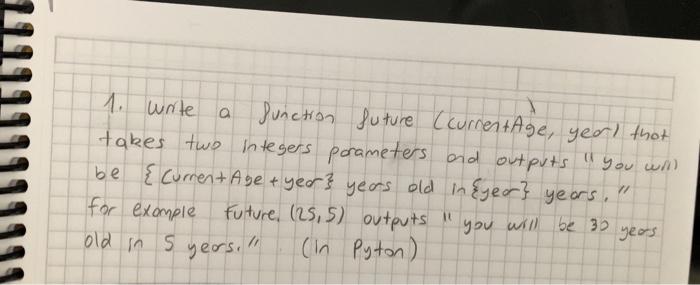 1. Write a function future (currentAge, year) that
takes two integers parameters and outputs "you will
be {currentAge + year} years old in {year} years."
for example future, (25, 5) outputs "you will be 30 years
old in 5 years." (in Pyton)